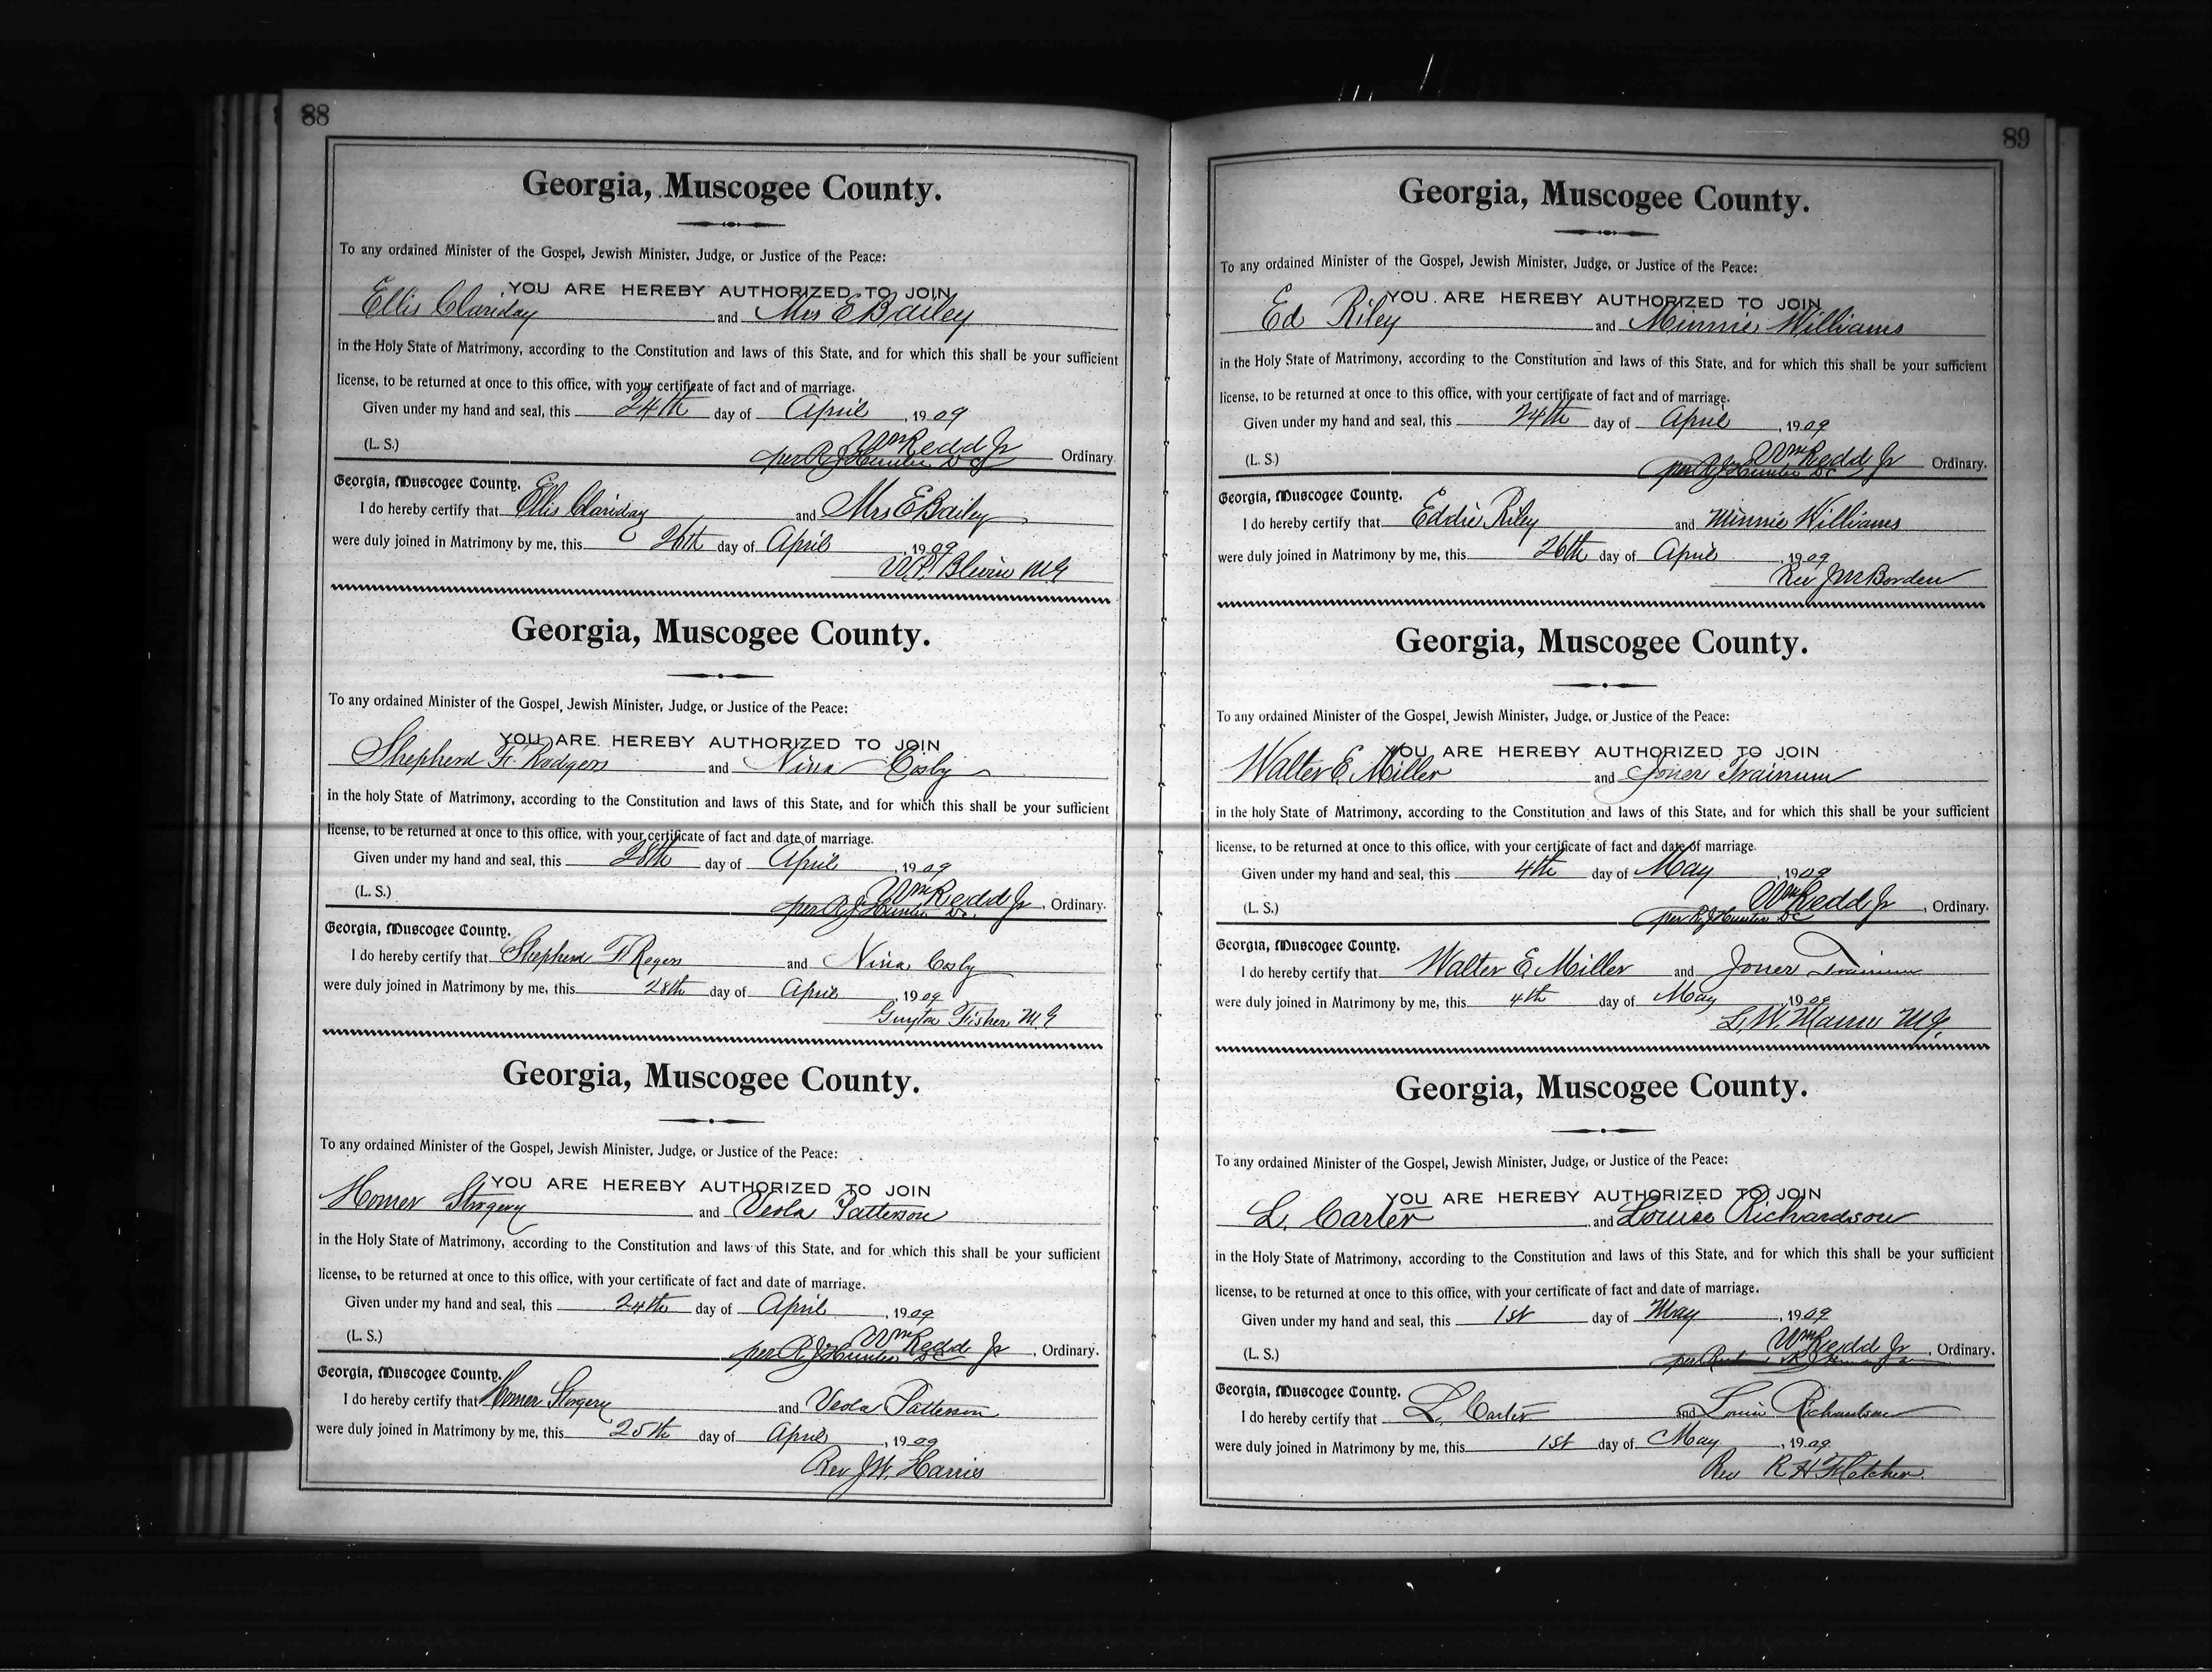 88
Georgia, Muscogee County.
To any ordained Minister of the Gospel, Jewish Minister, Judge, or Justice of the Peace:
YOU ARE HEREBY AUTHORIZED TO JOIN
Ellis Clariday and Mrs E Bailey
in the Holy State of Matrimony, according to the Constitution and laws of this State, and for which this shall be your sufficient
license, to be returned at once to this office, with your certificate of fact and of marriage.
Given under my hand and seal, this 24th day of April, 1909
(L. S.) Wm Redd Jr Ordinary.
per R J Hunter DC
Georgia, Muscogee County.
I do hereby certify that Ellis Clariday and Mrs E Bailey
were duly joined in Matrimony by me, this 26th day of April, 1909
Blevin MG
Georgia, Muscogee County.
To any ordained Minister of the Gospel, Jewish Minister, Judge, or Justice of the Peace:
YOU ARE HEREBY AUTHORIZED TO JOIN
Shepherd F. Rodgers and Nina Cosby
in the holy State of Matrimony, according to the Constitution and laws of this State, and for which this shall be your sufficient
license, to be returned at once to this office, with your certificate of fact and date of marriage.
Given under my hand and seal, this 28th day of April, 1909
(L. S.) Wm Redd Jr, Ordinary.
per R J Hunter DC.
Georgia, Muscogee County.
I do hereby certify that Shepherd F. Rogers and Nina Cosby
were duly joined in Matrimony by me, this 28th day of April, 1909
Guyton Fisher MG
Georgia, Muscogee County.
To any ordained Minister of the Gospel, Jewish Minister, Judge, or Justice of the Peace:
YOU ARE HEREBY AUTHORIZED TO JOIN
Homer Storgery and Veola Patterson
in the Holy State of Matrimony, according to the Constitution and laws of this State, and for which this shall be your sufficient
license, to be returned at once to this office, with your certificate of fact and date of marriage.
Given under my hand and seal, this 24th day of April, 1909
(L. S.) Wm Redd Jr, Ordinary.
per R J Hunter DC
Georgia, Muscogee County.
I do hereby certify that Homer Storgery and Veola Patterson
were duly joined in Matrimony by me, this 25th day of April, 1909
Rev J.W. Harris
89
Georgia, Muscogee County.
To any ordained Minister of the Gospel, Jewish Minister, Judge, or Justice of the Peace:
YOU ARE HEREBY AUTHORIZED TO JOIN
Ed Riley and Minnie Williams
in the Holy State of Matrimony, according to the Constitution and laws of this State, and for which this shall be your sufficient
license, to be returned at once to this office, with your certificate of fact and of marriage.
Given under my hand and seal, this 24th day of April, 1909
(L. S.) Wm Redd Jr Ordinary.
per R J Hunter DC
Georgia, Muscogee County.
I do hereby certify that Eddie Riley and Minnie Williams
were duly joined in Matrimony by me, this 26th day of April, 1909
Rev J M Borden
Georgia, Muscogee County.
To any ordained Minister of the Gospel, Jewish Minister, Judge, or Justice of the Peace:
YOU ARE HEREBY AUTHORIZED TO JOIN
Walter E. Miller and Joner Trainum
in the holy State of Matrimony, according to the Constitution and laws of this State, and for which this shall be your sufficient
license, to be returned at once to this office, with your certificate of fact and date of marriage.
Given under my hand and seal, this 4th day of May, 1909
(L. S.) Wm Redd Jr, Ordinary.
per R J Hunter DC
Georgia, Muscogee County.
I do hereby certify that Walter E Miller and Joner Trainum
were duly joined in Matrimony by me, this 4th day of May, 1909
L.W. Mann MG.
Georgia, Muscogee County.
To any ordained Minister of the Gospel, Jewish Minister, Judge, or Justice of the Peace:
YOU ARE HEREBY AUTHORIZED TO JOIN
L. Carter and Louise Richardson
in the Holy State of Matrimony, according to the Constitution and laws of this State, and for which this shall be your sufficient
license, to be returned at once to this office, with your certificate of fact and date of marriage.
Given under my hand and seal, this 1st day of May, 1909
(L. S.) Wm Redd Jr, Ordinary.
per
Georgia, Muscogee County.
I do hereby certify that L. Carter and Louise Richardson
were duly joined in Matrimony by me, this 1st day of May, 1909
Rev R H Fletcher.